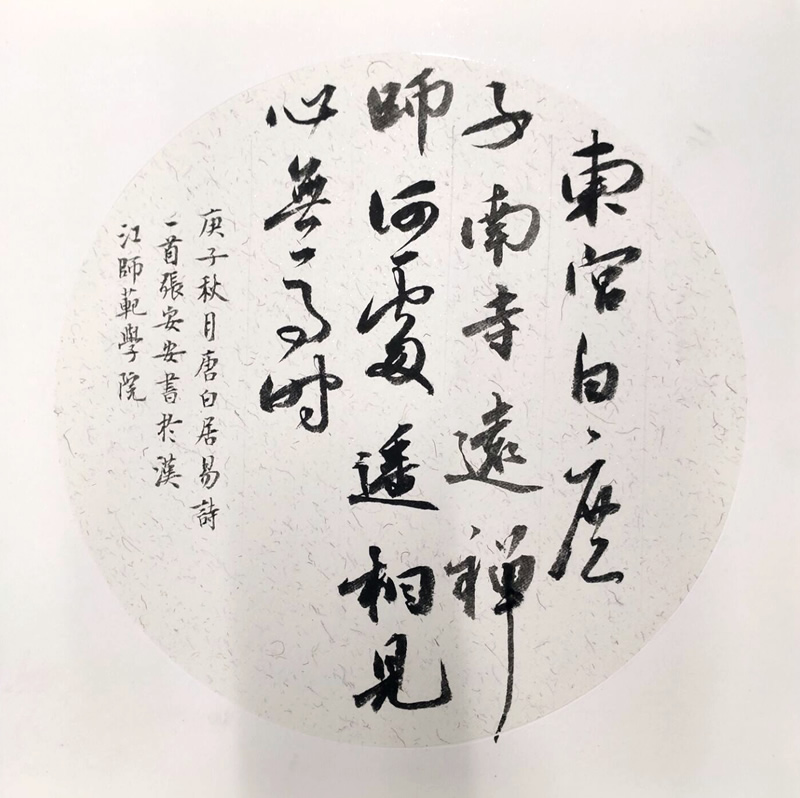 東宫白庶
子南寺遠禅
師何處遥相見
心無一事时
庚子秋月唐白居易詩
一首張安安書於漢
江師範學院